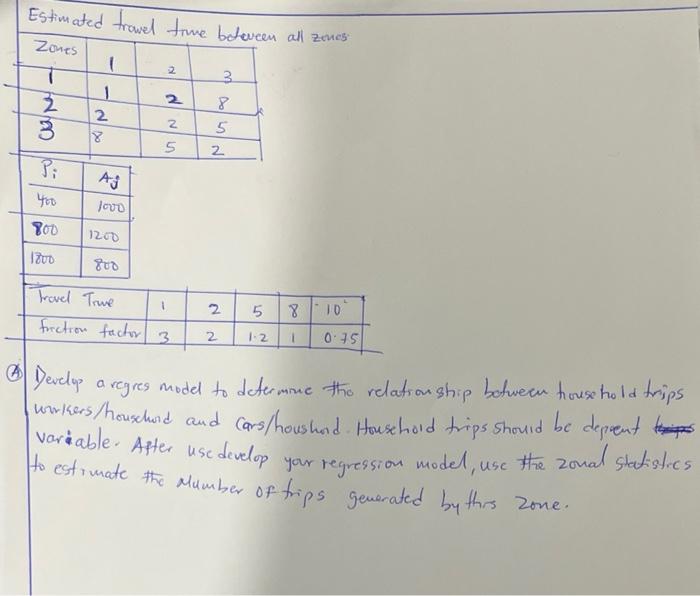 Estimated travel time between all zones
Zones 1 2 3
1 1 2 8
2 2 2 5
3 8 5 2
Pi Aj
400 1000
800 1200
1800 800
Travel Time 1 2 5 8 10
friction factor 3 2 1.2 1 0.75
A Develop a regres model to determine the relationship between household trips
workers/household and Cars/houshold. Household trips should be depent
variable. After use develop your regression model, use the zonal statistics
to estimate the Number of trips generated by this zone.